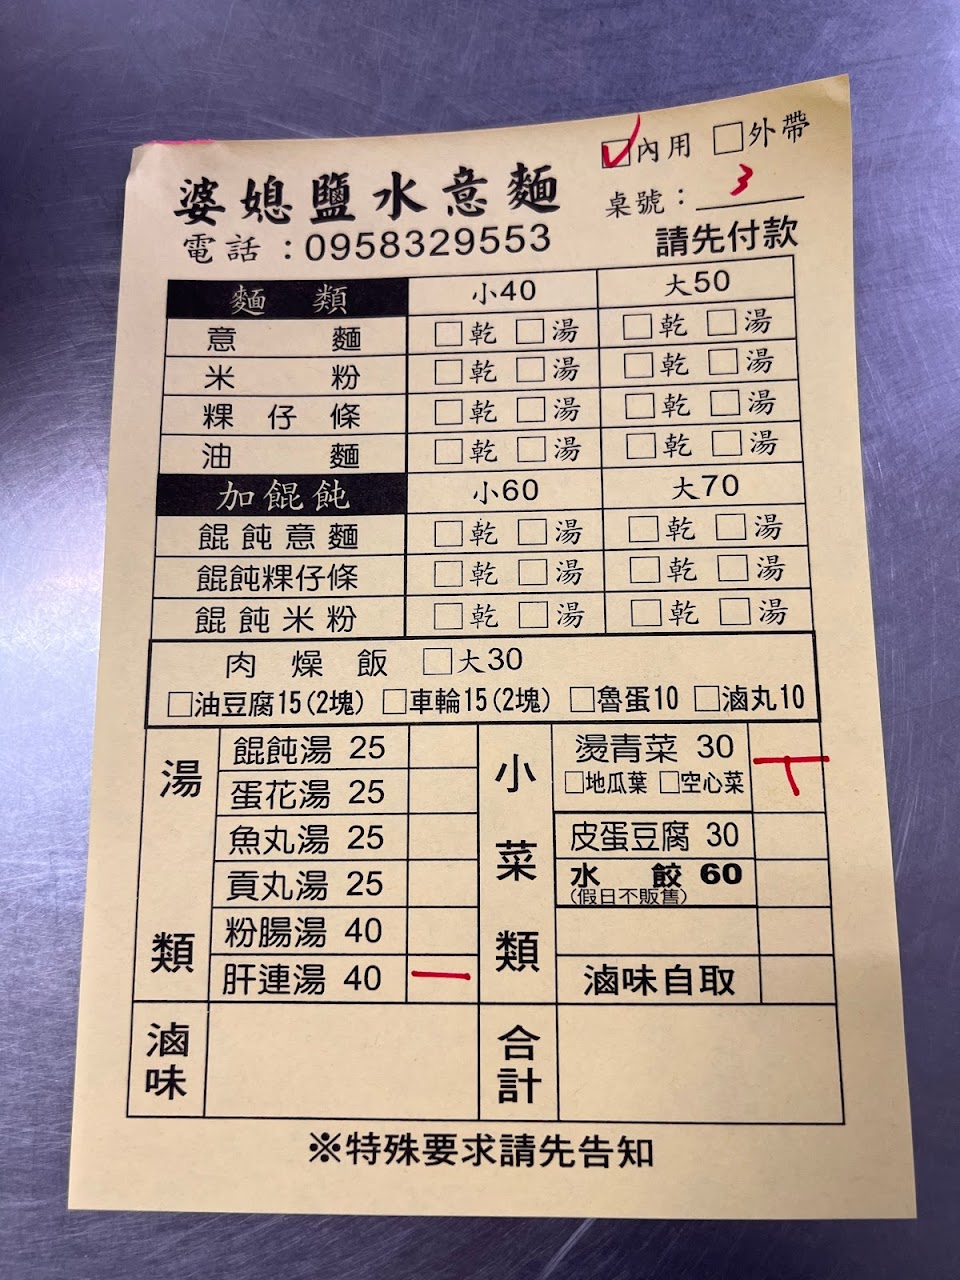 ☑內用 □外帶
婆媳鹽水意麵
桌號：3
電話：0958329553
請先付款
麵類 小40 大50
意麵 □乾 □湯 □乾 □湯
米粉 □乾 □湯 □乾 □湯
粿仔條 □乾 □湯 □乾 □湯
油麵 □乾 □湯 □乾 □湯
加餛飩 小60 大70
餛飩意麵 □乾 □湯 □乾 □湯
餛飩粿仔條 □乾 □湯 □乾 □湯
餛飩米粉 □乾 □湯 □乾 □湯
肉燥飯 □大30
□油豆腐15(2塊) □車輪15(2塊) □魯蛋10 □滷丸10
湯類
餛飩湯 25
蛋花湯 25
魚丸湯 25
貢丸湯 25
粉腸湯 40
肝連湯 40 一
小菜類
燙青菜 30 丅
□地瓜葉 □空心菜
皮蛋豆腐 30
水餃 60
(假日不販售)
滷味自取
滷味
合計
※特殊要求請先告知